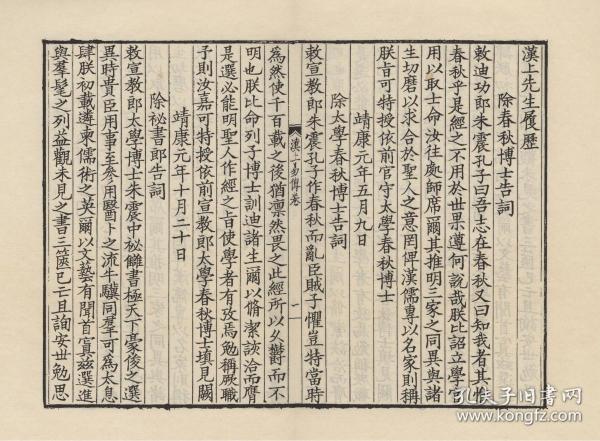 漢上先生履歷
除春秋博士告詞
敕迪功郎朱震孔子曰吾志在春秋又曰知我者其惟
春秋乎是經之不用於世果遵何說哉朕比詔立學官
用以取士命汝往處師席爾其推明三家之同異與諸
生切磨以求合於聖人之意罔俾漢儒專以名家則稱
朕旨可特授依前官守太學春秋博士
靖康元年五月九日
除太學春秋博士告詞
敕宣教郎朱震孔子作春秋而亂臣賊子懼豈特當時
漢上易傳卷
一
為然使千百載之後猶凛然畏之此經所以久鬱而不
明也朕比命列于博士訓迪諸生爾以脩潔詼洽而膺
是選必能明聖人作經之旨使學者有攷焉勉稱厥職
予則汝嘉可特授依前宣教郎太學春秋博士填見闕
靖康元年十月二十日
除祕書郎告詞
敕宣教郎太學博士朱震中祕讎書極天下豪俊之選
異時貴臣用事至參用醫卜之流牛驥同羣可為太息
肆朕初載遴柬儒術之英爾以文藝有聞首寘茲選進
與羣髦之列益觀未見之書三篋已亡且詢安世勉思
孔夫子旧书网